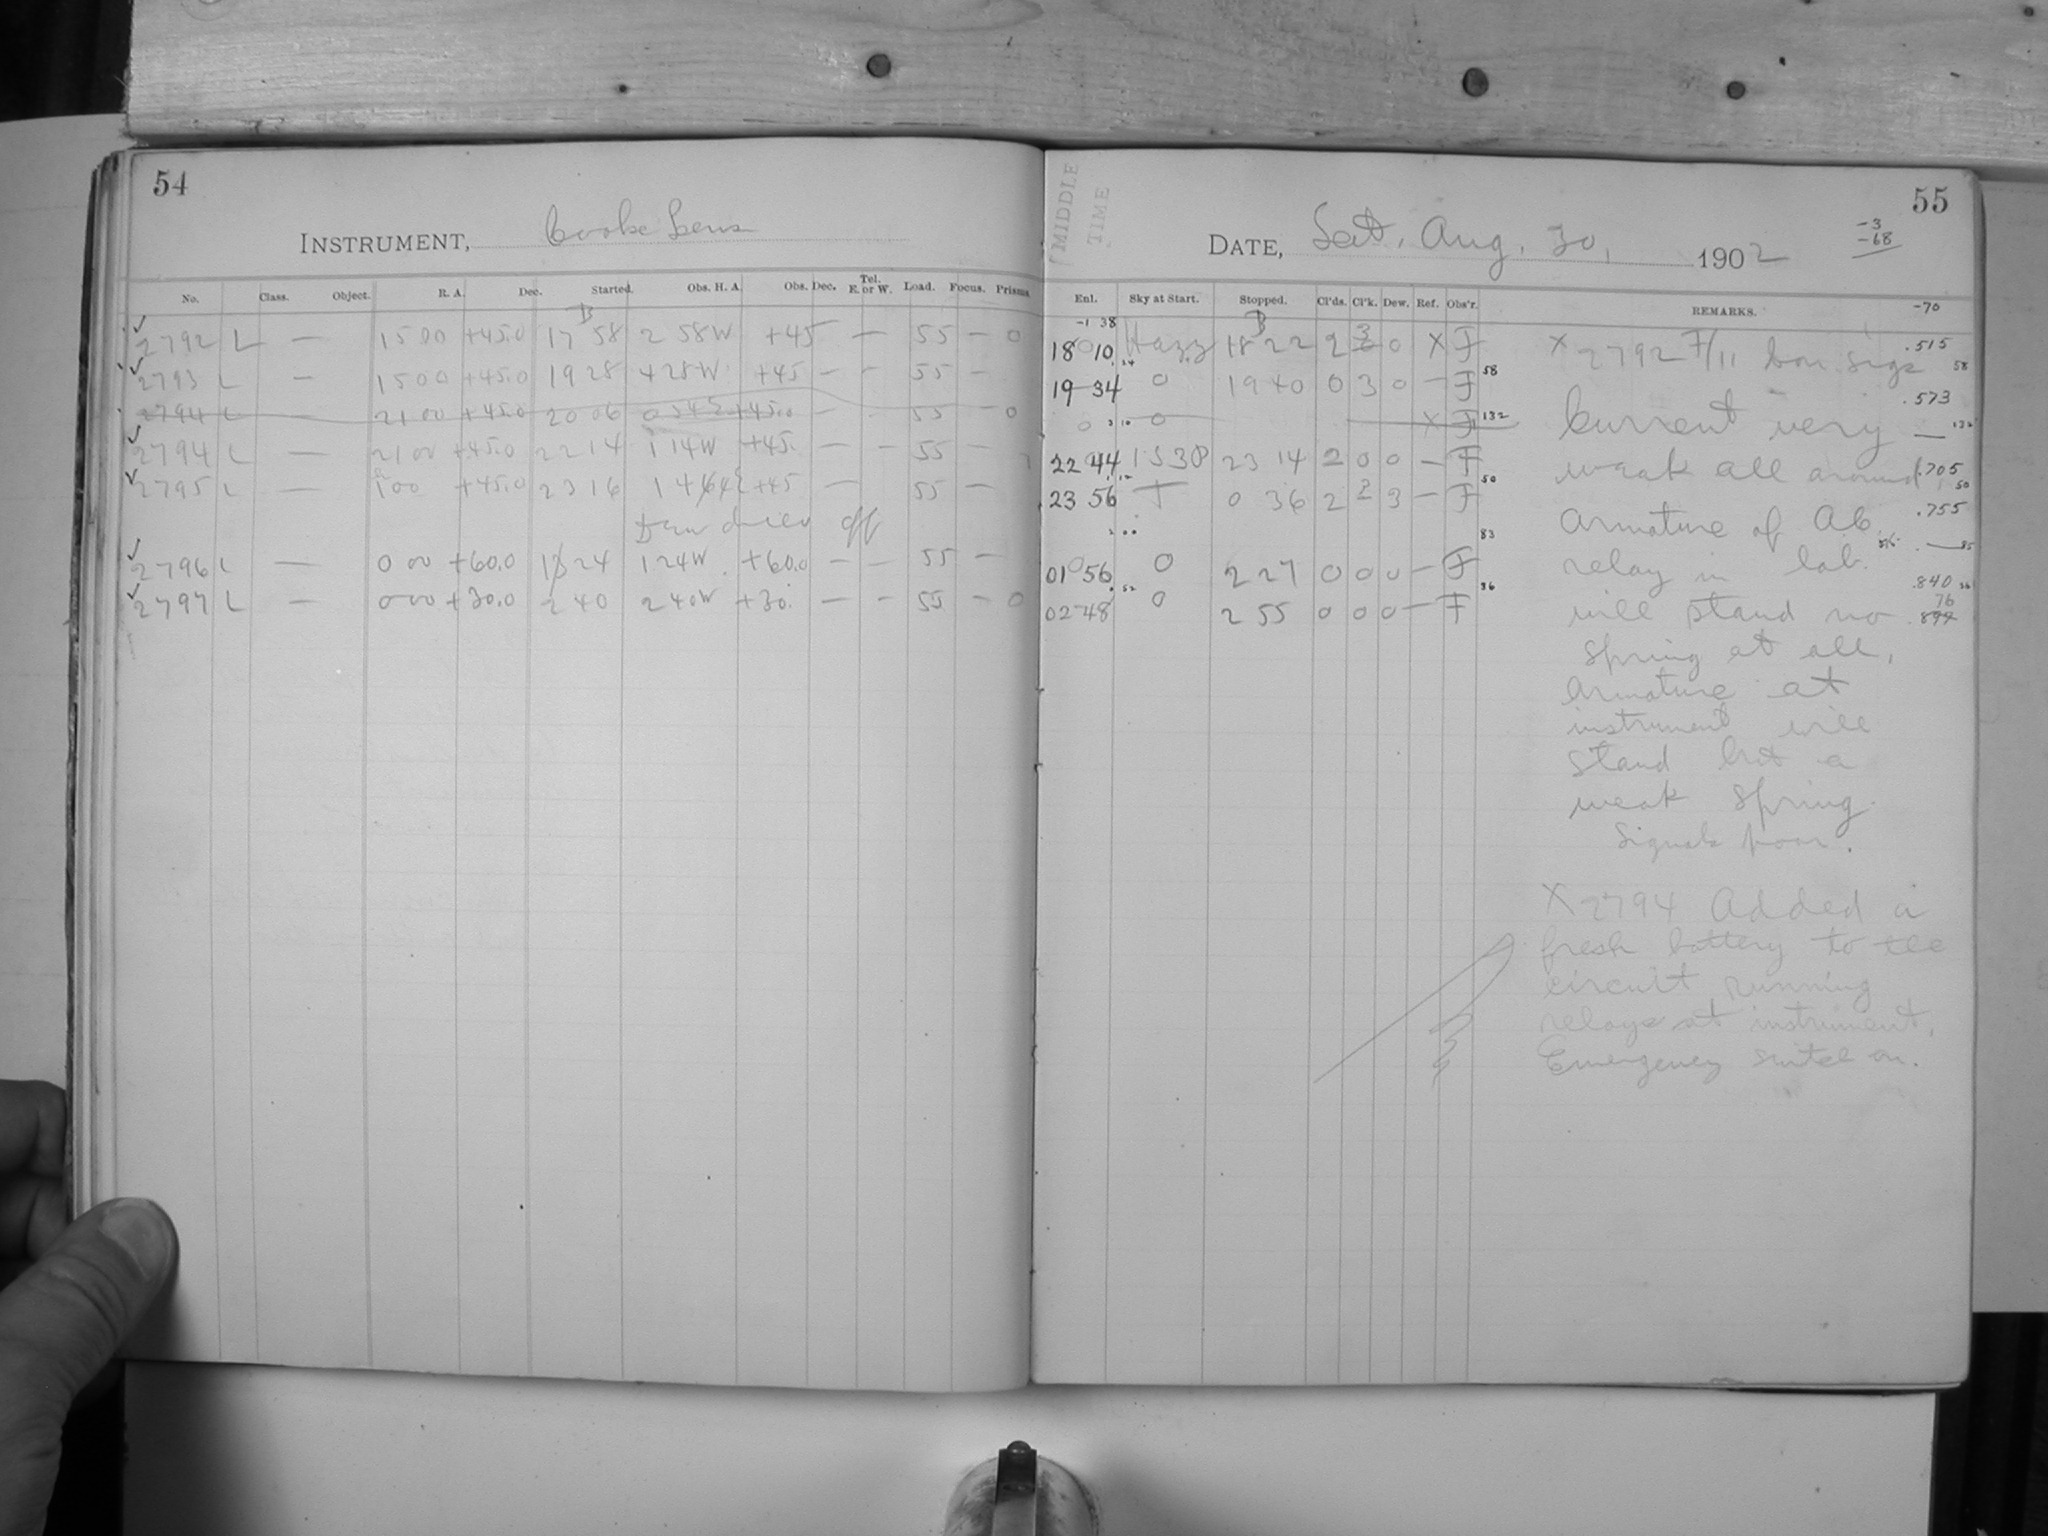 54
INSTRUMENT, Cooke Lens
No. Class. Object. R. A. Dec. Started. Obs. H. A. Obs. Dec. Tel. E. or W. Load. Focus. Prisms
2792 L — 15 00 +45.0 17 58 2 58W +45 — — 55 — 0
2793 L — 15 00 +45.0 19 28 4 28W +45 — — 55 —
2794 L — 21 00 +45.0 20 06 0 54E +45.0 — — 55 — 0
2794 L — 21 00 +45.0 22 14 1 14W +45. — — 55 —
2795 L — 1 00 +45.0 23 16 1 44E +45 — 55 —
Dew dried off
2796 L — 0 00 +60.0 1 24 1 24W +60.0 — — 55 —
2797 L — 0 00 +30.0 2 40 2 40W +30. — — 55 — 0
55
MIDDLE
TIME
DATE, Sat. Aug. 30, 1902
-3
-68
Enl. Sky at Start. Stopped. Cl'ds. Cl'k. Dew. Ref. Obs'r. REMARKS. -70
18 10 Hazy 18 22 2 3 0 X F
19 34 0 19 40 0 3 0 — F 58
0 0 X F 132
22 44 1530P 23 14 2 0 0 — F
23 56 T 0 36 2 3 3 — F 50
83
01 56 0 2 27 0 0 0 — F
02 48 0 2 55 0 0 0 — F 36
X 2792 F/11 bon sigs .515
58
.573
Current very 132
weak all around .705
50
Armature of AC .755
relay in lab. 85
.840 36
will stand no 76
spring at all.
Armature at
instrument will
stand but a
weak spring.
Signals poor.
X 2794 Added a
fresh battery to the
circuit running
relays at instrument.
Emergency switch on.